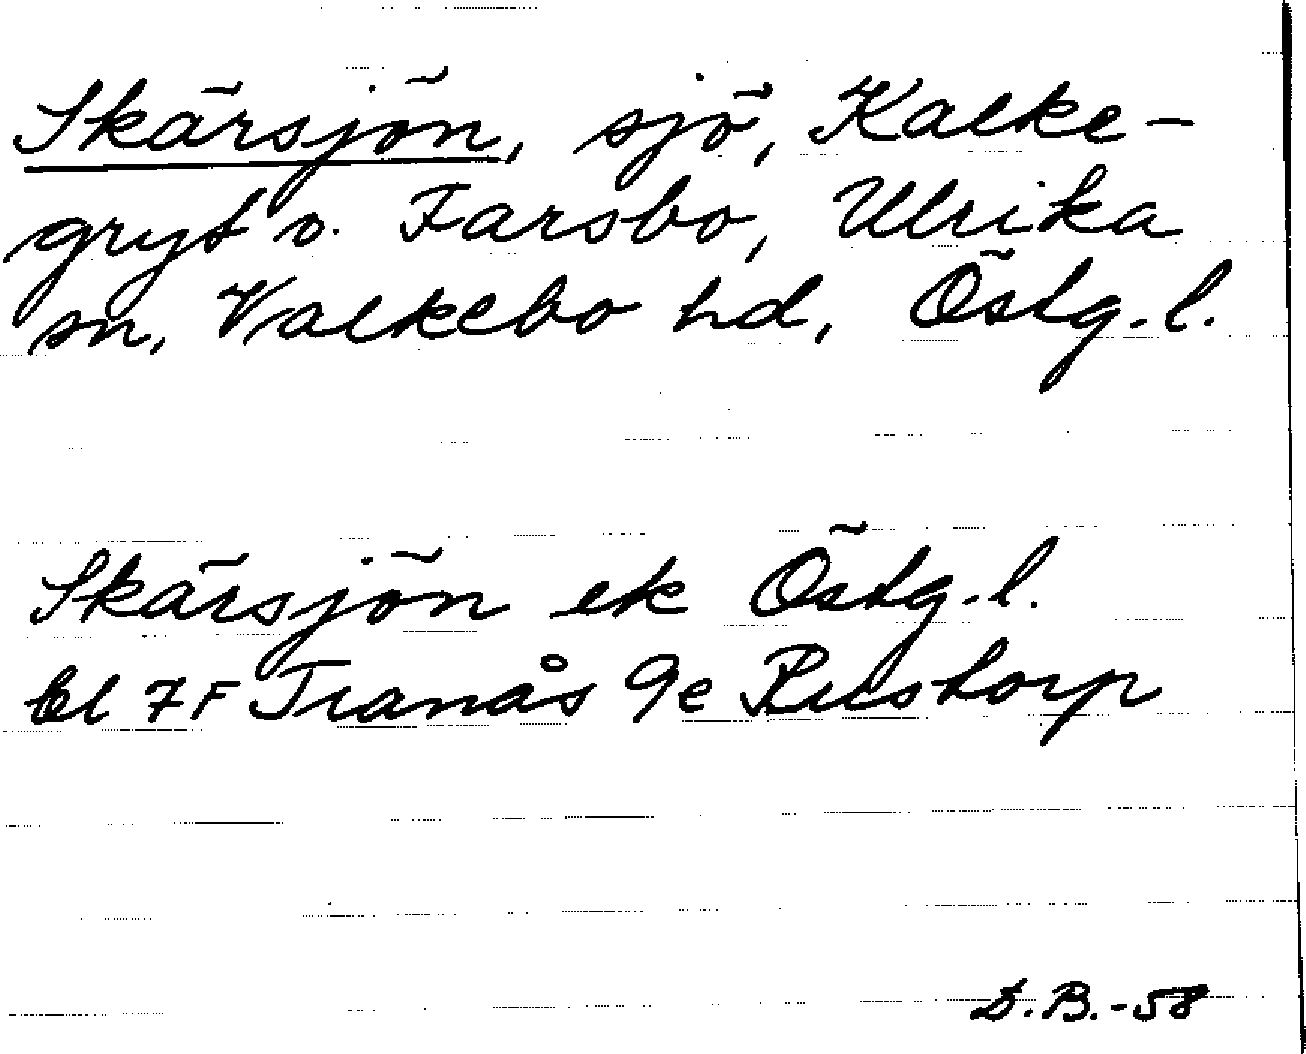 Skärsjön, sjö, Kalke-
gryt o. Farsbo, Ulrika
sn, Valkebo hd, Östg.l.
Skärsjön ek Östg.l.
bl 7F Tranås 9e Rustorp
D.B.-58